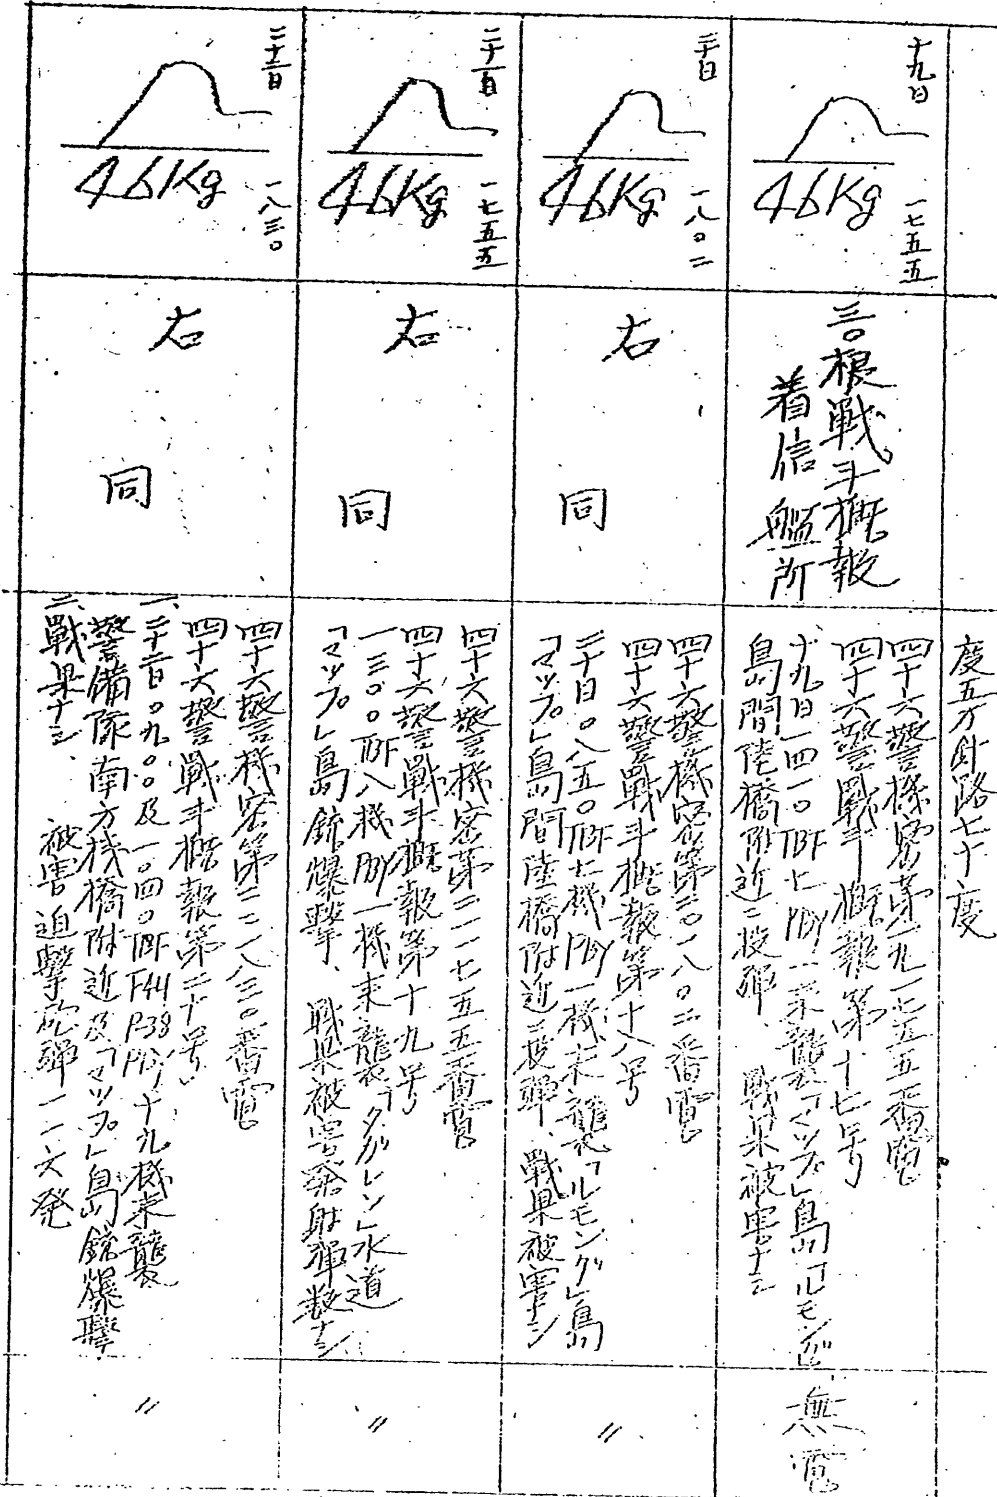 度五方針路七十度
十九日
46Kg
一七五五
三〇根戦斗概報
着信艦所
四十六警機密第一九一七五五番電
四十六警戰斗概報第十七号
十九日一四一〇TBF七PBY一来襲「マップ」島「ルモング」
島間陸橋附近ニ投弾、戰果被害ナシ
無電
二十日
46Kg
一八〇二
右
同
四十六警機密第二〇一八〇二番電
四十六警戰斗概報第十八号
二十日〇八五〇TBF七機PBY一機来襲「ルモング」島
「マップ」島間陸橋附近ニ投弾、戰果被害ナシ
〃
二十一日
46Kg
一七五五
右
同
四十六警機密第二一一七五五番電
四十六警戰斗概報第十九号
一三〇〇TBF八機PBY一機来襲「タガレン」水道
「マップ」島銃爆撃、戰果被害発射弾数ナシ
〃
二十二日
46Kg
一八三〇
右
同
四十六警機密第二二一八三〇番電
四十六警戰斗概報第二十号
一、二十二日〇九〇〇及一〇四〇TBF F4U P-38 PBY十九機来襲
警備隊南方桟橋附近及「マップ」島銃爆撃
二、戰果ナシ、被害迫撃砲弾一二六発
〃